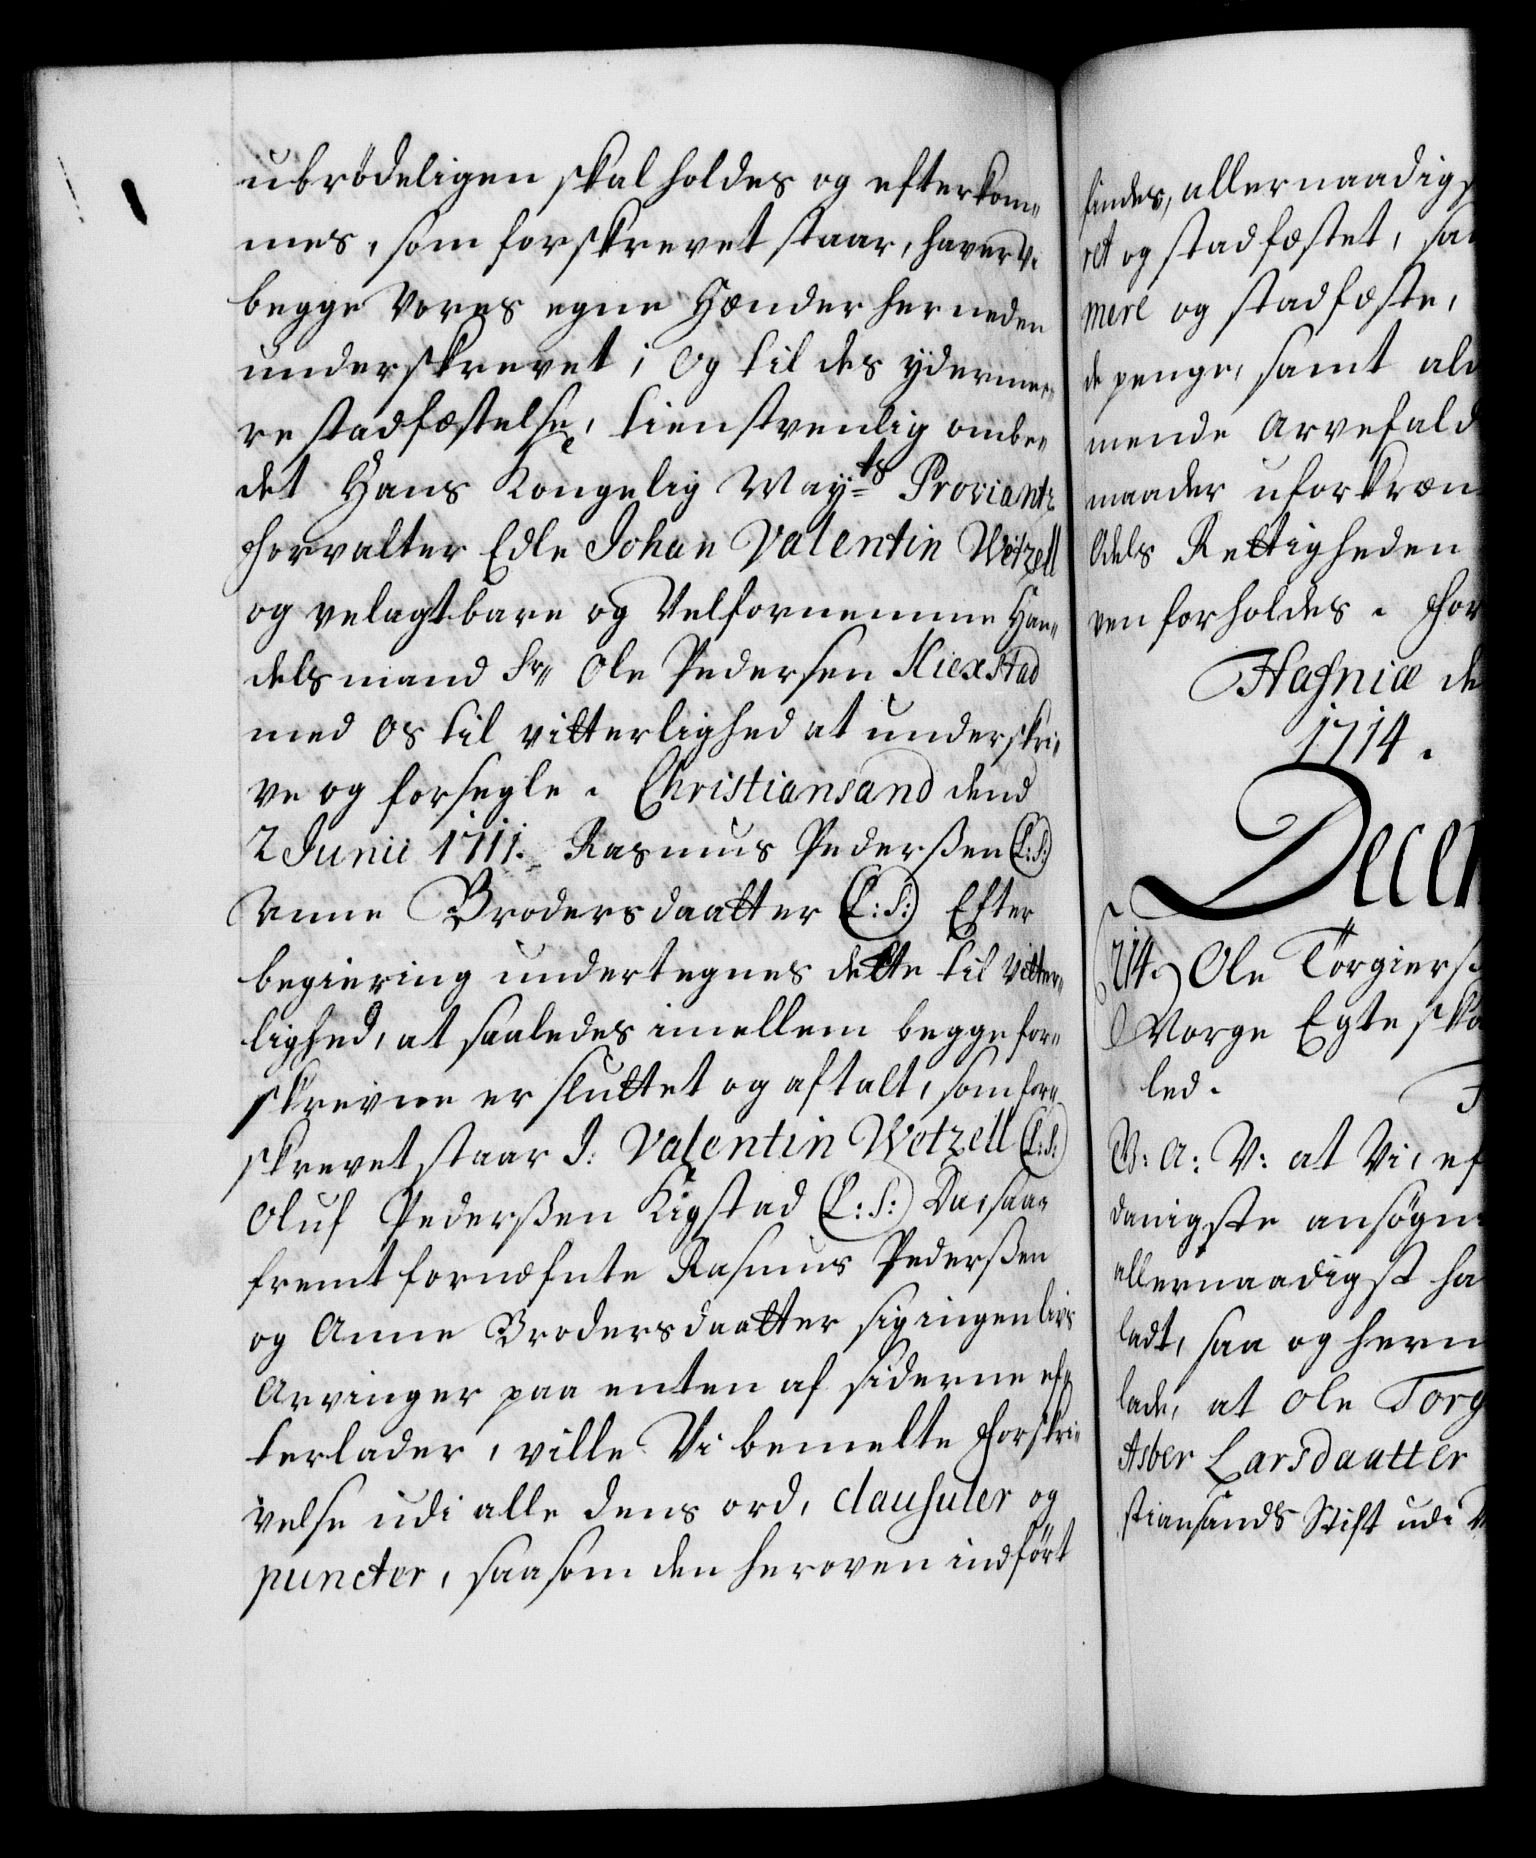 ubrödeligen skal holdes og efterkom„
mes, som forskrevet staar, haver vi
begge Vores egne Hænder her neden
underskrevet; Og til des ydermee„
re stadfæstelse, tienstvenlig ombe„
det Hans Kongelig May:ts Proviantz
Forvalter Edle Johan Valentin Wetzell
og velagtbare og Velfornemme Han„
delsmand Sr„ Ole Pedersen Kiexstad
med os til vitterlighed at underskri„
ve og forsegle. Christiansand dend
2 Junii 1711. Rasmus Pederßen (L:S:)
Anne Brodersdaatter (L:S:) Efter
begiering undertegnes dette til Vitter„
lighed, at saaledes imellem begge for„
skrevne er sluttet og aftalt, som for„
skrevet staar J: Valentin Wetzell (L:S:)
Oluf Pederßen Kigstad (L:S:) Da, saa„
fremt fornefnte Rasmus Pederßen
og Anne Brodersdaatter sig ingen livs
Arvinger paa enten af siderne ef„
terlader, ville Vi bemelte Forskri„
velse udi alle dens ord, clausuler og
puncter, saasom den heroven indfört
findes, allernaadigs
ret og stadfæstet, sa
mere og stadfæste,
de penge, samt al
mende Arvefald
maader uforkræn
Odels Rettigheden
ven forholdes. For
Hafniæ de
1714.
Decem
714. Ole Törgiers
Norge Egteska
led. F
V: A: V: at Vi, ef
danigste ansögn
allernaadigst ha
ladt, saa og hern
lade, at Ole Torg
Asber Larsdautter
stiansands Stift udi